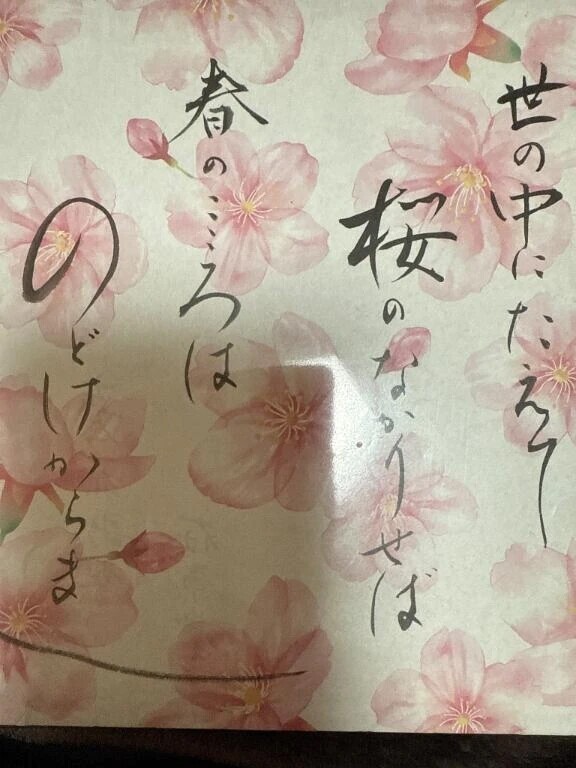 世の中にたえて
桜のなかりせば
春のこころは
のどけからまし